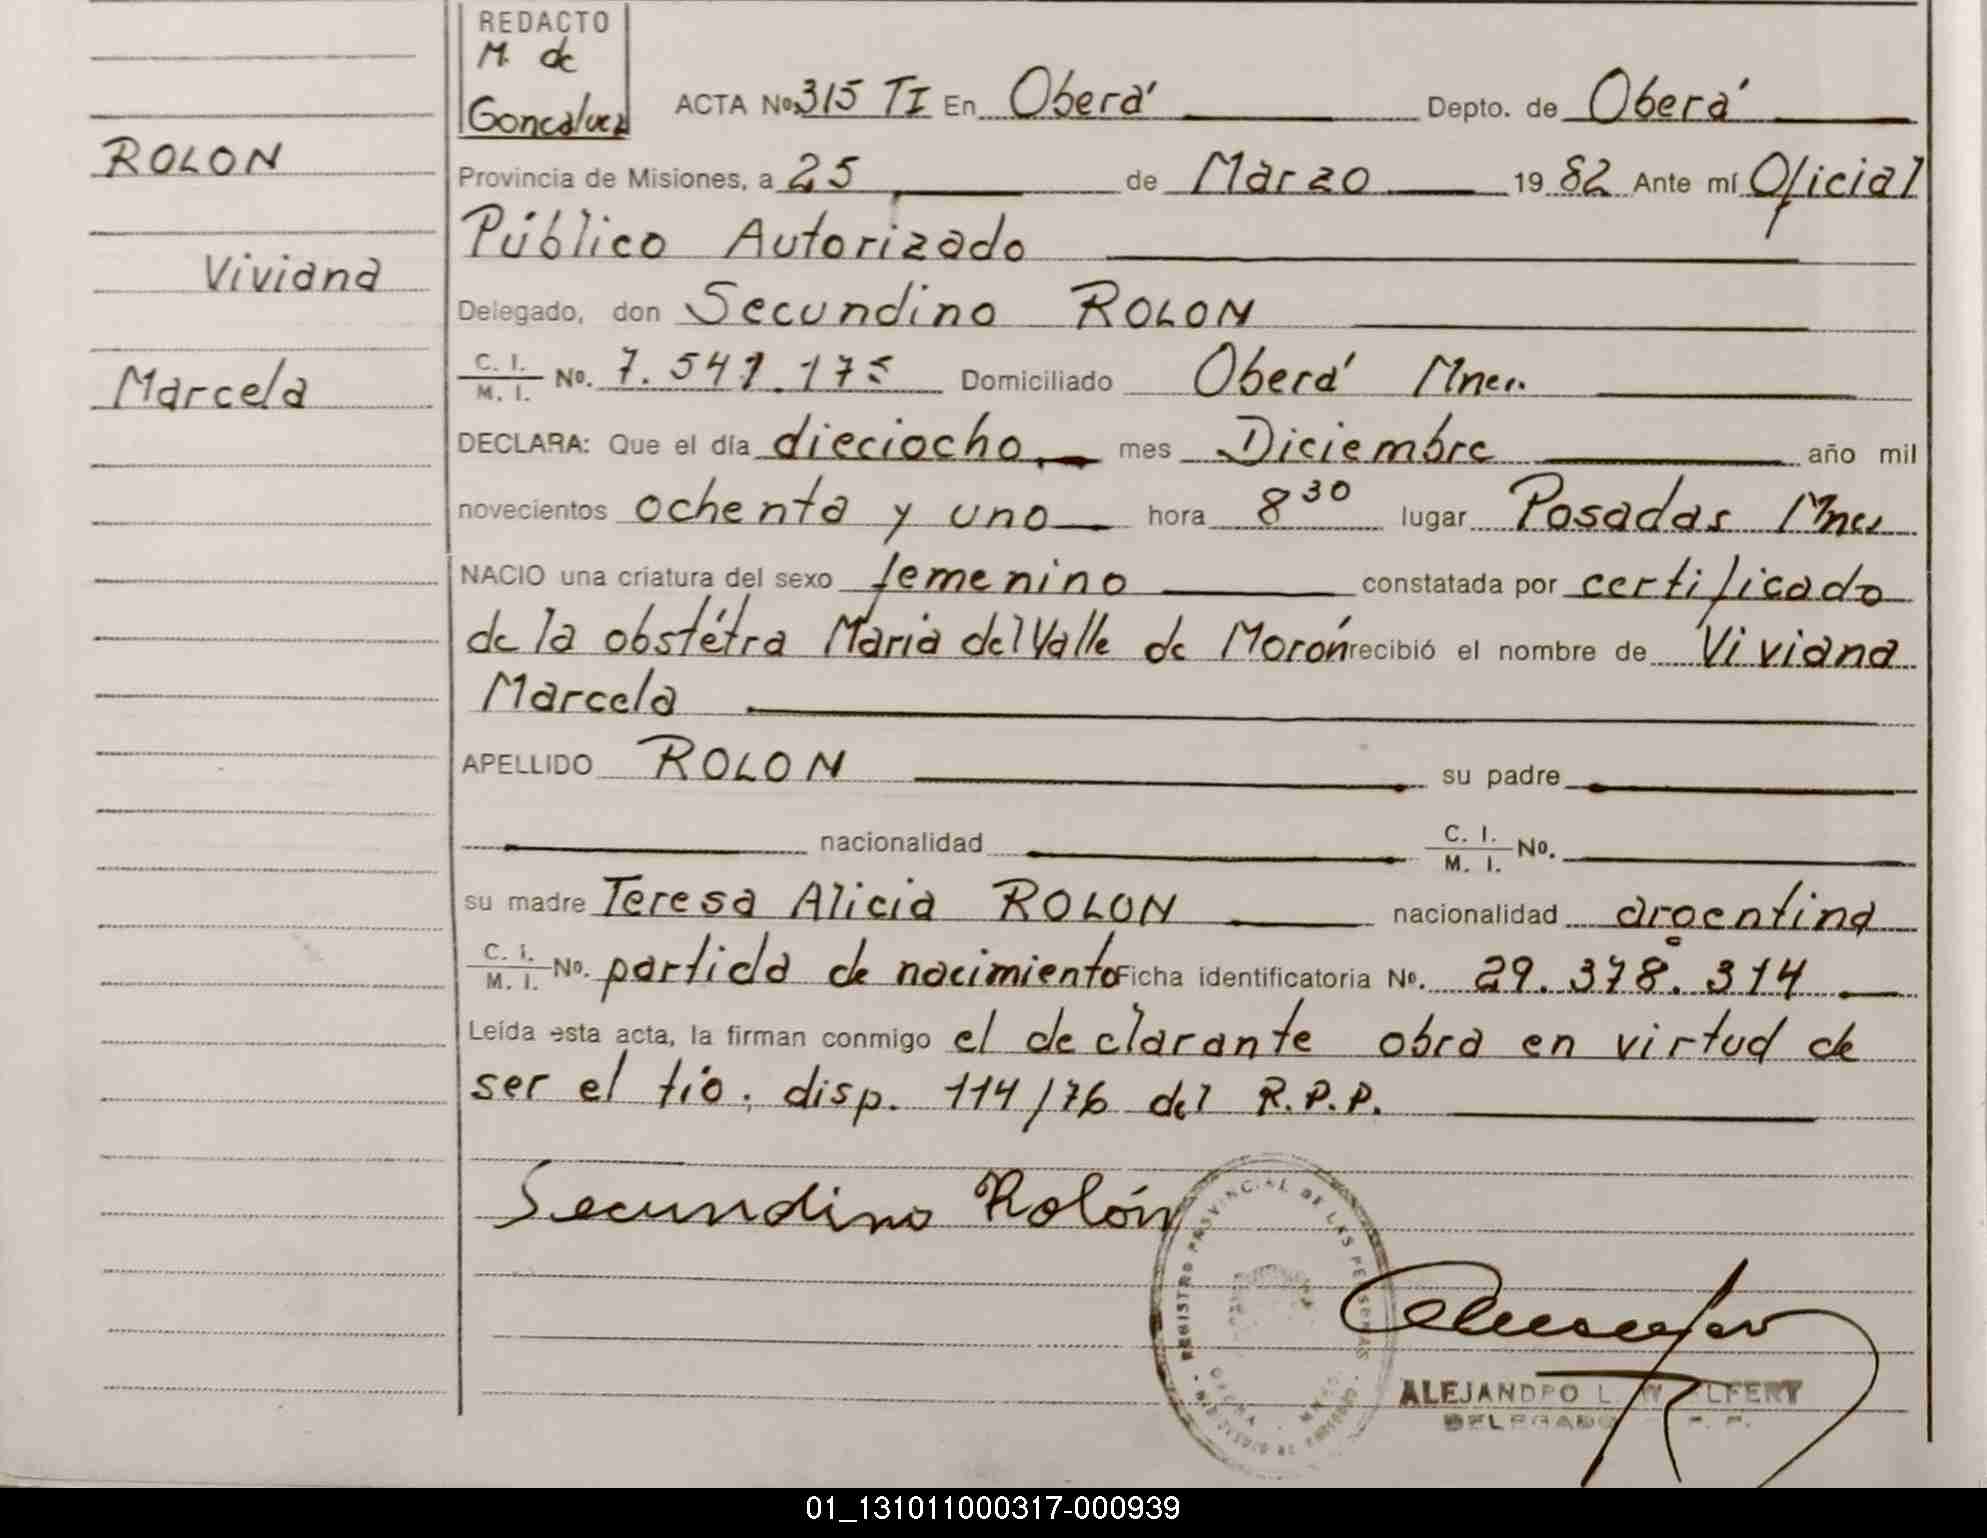 REDACTO
M. de
Goncalvez
ACTA No. 315 TI En Oberá Depto. de Oberá
ROLON
Provincia de Misiones, a 25 de Marzo 1982 Ante mí Oficial
Público Autorizado
Viviana
Delegado, don Secundino ROLON
Marcela
C. I. / M. I. No. 7.541.175 Domiciliado Oberá Mnes.
DECLARA: Que el día dieciocho mes Diciembre año mil
novecientos ochenta y uno hora 8 30 lugar Posadas Mnes
NACIO una criatura del sexo femenino constatada por certificado
de la obstétra Maria del Valle de Morón recibió el nombre de Viviana
Marcela
APELLIDO ROLON su padre
nacionalidad C. I. / M. I. No.
su madre Teresa Alicia ROLON nacionalidad argentina
C. I. / M. I. No. partida de nacimiento Ficha identificatoria No. 29.378.314
Leída esta acta, la firman conmigo el declarante obra en virtud de
ser el tío; disp. 114/76 del R.P.P.
Secundino Rolón
REGISTRO PROVINCIAL DE LAS PERSONAS
ALEJANDRO L.
DELEGADO
01_131011000317-000939